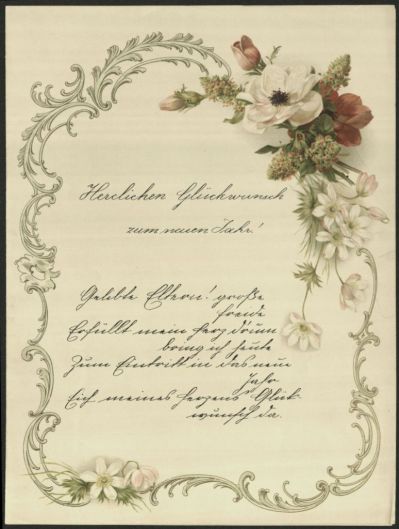 Herzlichen Glückwunsch
zum neuen Jahr!
Geliebte Eltern! große
Freude
Erfüllt mein Herz drum
bring ich heute
Zum Eintritt in das neue
Jahr
Euch meines Herzens Glück-
wunsch da.